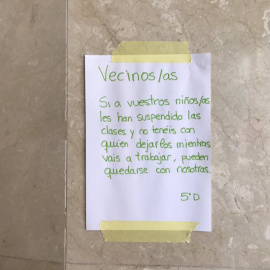 Vecinos/as
Si a vuestros niños/as
les han suspendido las
clases y no teneis con
quien dejarlos mientras
vais a trabajar, pueden
quedarse con nosotras.
5°D